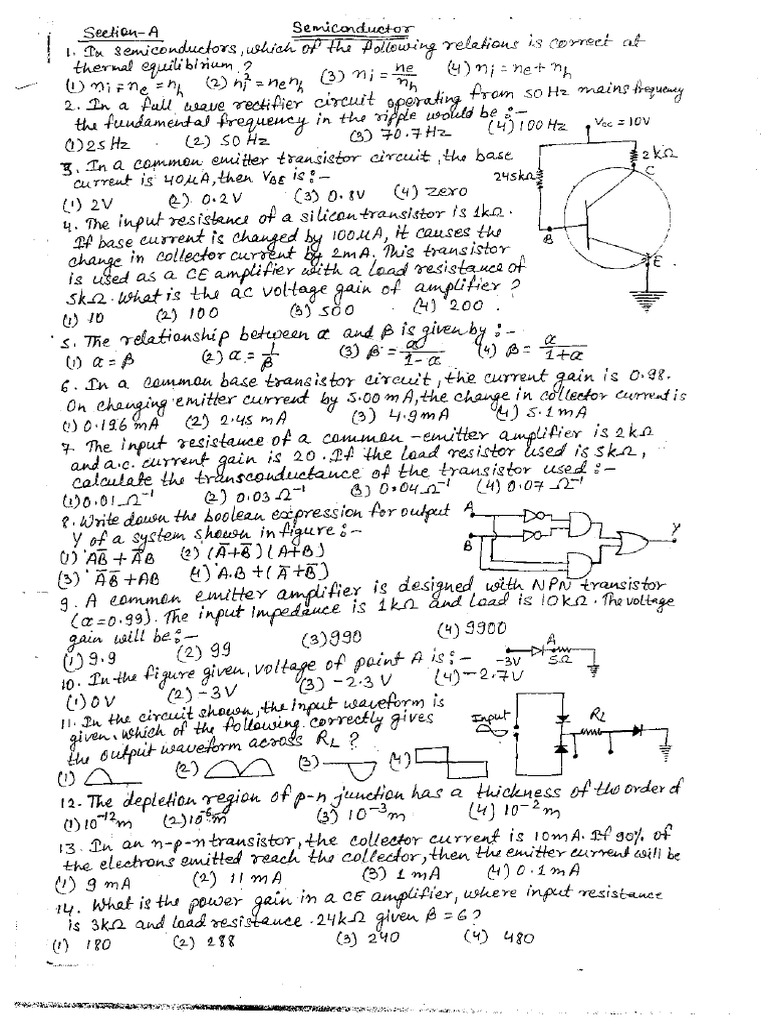 Section-A
Semiconductor
1. In semiconductors, which of the following relations is correct at
thermal equilibirium?
(1) ni = ne = nh (2) ni² = ne nh (3) ni = ne/nh (4) ni = ne + nh
2. In a full wave rectifier circuit operating from 50 Hz mains frequency
the fundamental frequency in the ripple would be :-
(1) 25 Hz (2) 50 Hz (3) 70.7 Hz (4) 100 Hz
Vcc = 10V
3. In a common emitter transistor circuit, the base
current is 40μA, then VBE is :-
(1) 2V (2) 0.2V (3) 0.8V (4) zero
245kΩ
2 kΩ
C
B
E
4. The input resistance of a silicon transistor is 1kΩ.
If base current is changed by 100μA, it causes the
change in collector current by 2mA. This transistor
is used as a CE amplifier with a load resistance of
5kΩ. What is the ac voltage gain of amplifier?
(1) 10 (2) 100 (3) 500 (4) 200.
5. The relationship between α and β is given by :-
(1) α = β (2) α = 1/β (3) β = α/1-α (4) β = α/1+α
6. In a common base transistor circuit, the current gain is 0.98.
On changing emitter current by 5.00 mA, the change in collector current is
(1) 0.196 mA (2) 2.45 mA (3) 4.9mA (4) 5.1mA
7. The input resistance of a common-emitter amplifier is 2kΩ
and a.c. current gain is 20. If the load resistor used is 5kΩ,
calculate the transconductance of the transistor used :-
(1) 0.01 Ω⁻¹ (2) 0.03 Ω⁻¹ (3) 0.04 Ω⁻¹ (4) 0.07 Ω⁻¹
8. Write down the boolean expression for output
Y of a system shown in figure :-
A
B
Y
(1) AB̅ + A̅B (2) (A̅+B̅)(A+B)
(3) A̅B̅ + AB (4) A.B + (A̅+B̅)
9. A common emitter amplifier is designed with NPN transistor
(α=0.99). The input impedance is 1kΩ and load is 10kΩ. The voltage
gain will be :-
(1) 9.9 (2) 99 (3) 990 (4) 9900
10. In the figure given, voltage of point A is :-
(1) 0V (2) -3V (3) -2.3V (4) -2.7V
A
-3V
5Ω
11. In the circuit shown, the input waveform is
given, which of the following correctly gives
the output waveform across RL?
Input
RL
(1) (2) (3) (4)
12. The depletion region of p-n junction has a thickness of the order of
(1) 10⁻¹²m (2) 10⁻⁶m (3) 10⁻³m (4) 10⁻²m
13. In an n-p-n transistor, the collector current is 10mA. If 90% of
the electrons emitted reach the collector, then the emitter current will be
(1) 9 mA (2) 11 mA (3) 1 mA (4) 0.1 mA
14. What is the power gain in a CE amplifier, where input resistance
is 3kΩ and load resistance 24kΩ given β = 6?
(1) 180 (2) 288 (3) 240 (4) 480